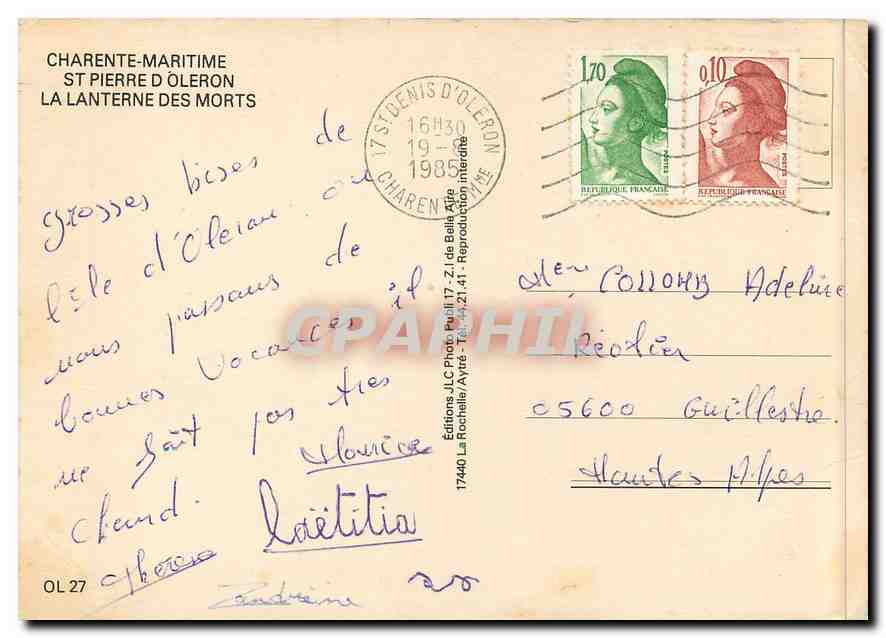 CHARENTE-MARITIME
ST PIERRE D'OLERON
LA LANTERNE DES MORTS
grosses bises de
l'ile d'Oleron ou
nous passons de
bonnes vacances il
ne fait pas tres
chaud.
Maurice
Laëtitia
Sandrine
OL 27
17 ST DENIS D'OLERON
16H30
19-8
1985
CHARENTE MME
Éditions JLC Photo Publi 17 - Z.I de Belle Aire
17440 La Rochelle/Aytré - Tél. 44.21.41 - Reproduction interdite
1,70
POSTES
REPUBLIQUE FRANÇAISE
0,10
POSTES
REPUBLIQUE FRANÇAISE
CPAPHIL
COLLOMB Adeline
05600 Guillestre
Hautes Alpes